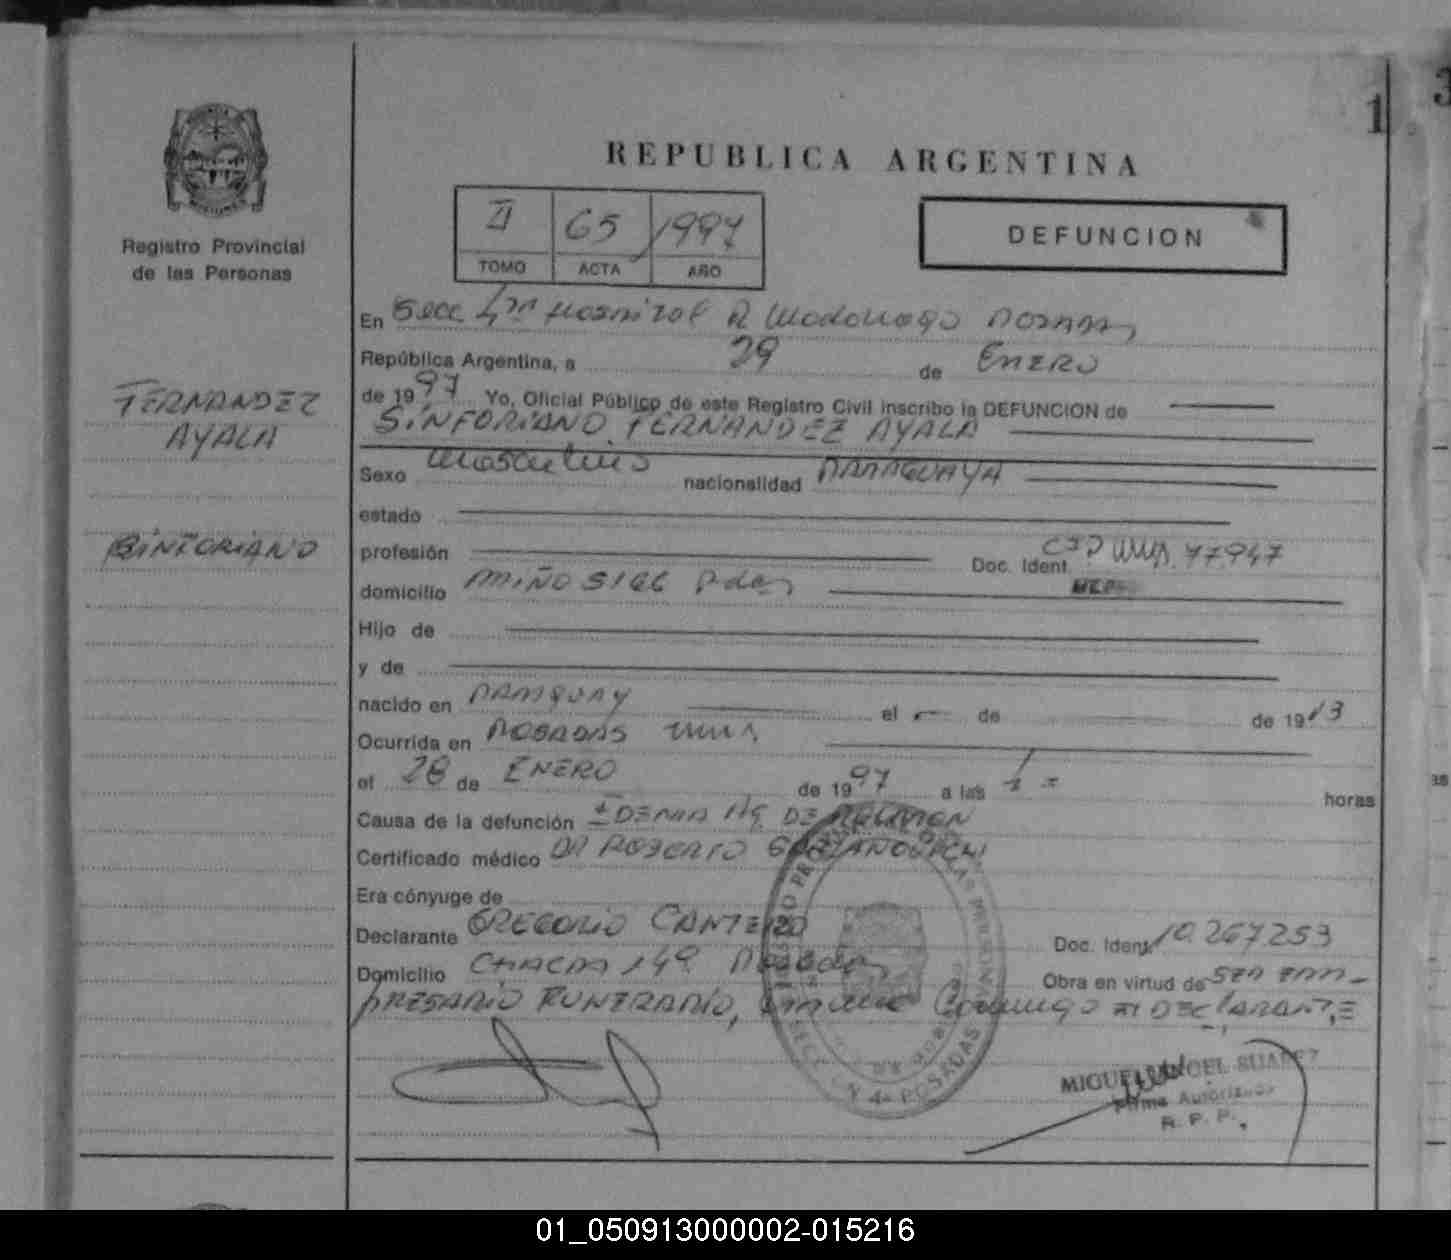 1
REPUBLICA ARGENTINA
Registro Provincial
de las Personas
II 65 1997
TOMO ACTA AÑO
DEFUNCION
En Secc 4ta Hospital R Madariaga Posadas,
República Argentina, a 29 de ENERO
de 1997 Yo, Oficial Público de este Registro Civil inscribo la DEFUNCION de
SINFORIANO FERNANDEZ AYALA
FERNANDEZ
AYALA
SINFORIANO
Sexo masculino nacionalidad PARAGUAYA
estado
profesión Doc. Ident. 77.947
domicilio MIÑO Pdas
Hijo de
y de
nacido en PARAGUAY el de de 1913
Ocurrida en POSADAS
el 28 de ENERO de 1997 a las horas
Causa de la defunción
Certificado médico DR ROBERTO
Era cónyuge de
Declarante GREGORIO CANTERO Doc. Ident. 10.267253
Domicilio CHACRA 149 Posadas Obra en virtud de SER EM-
PRESARIO FUNERARIO, Conmigo EL DECLARANTE
SECC. 4a POSADAS
MIGUEL ANGEL SUAREZ
Firma Autorizada
R. P. P.
01_050913000002-015216